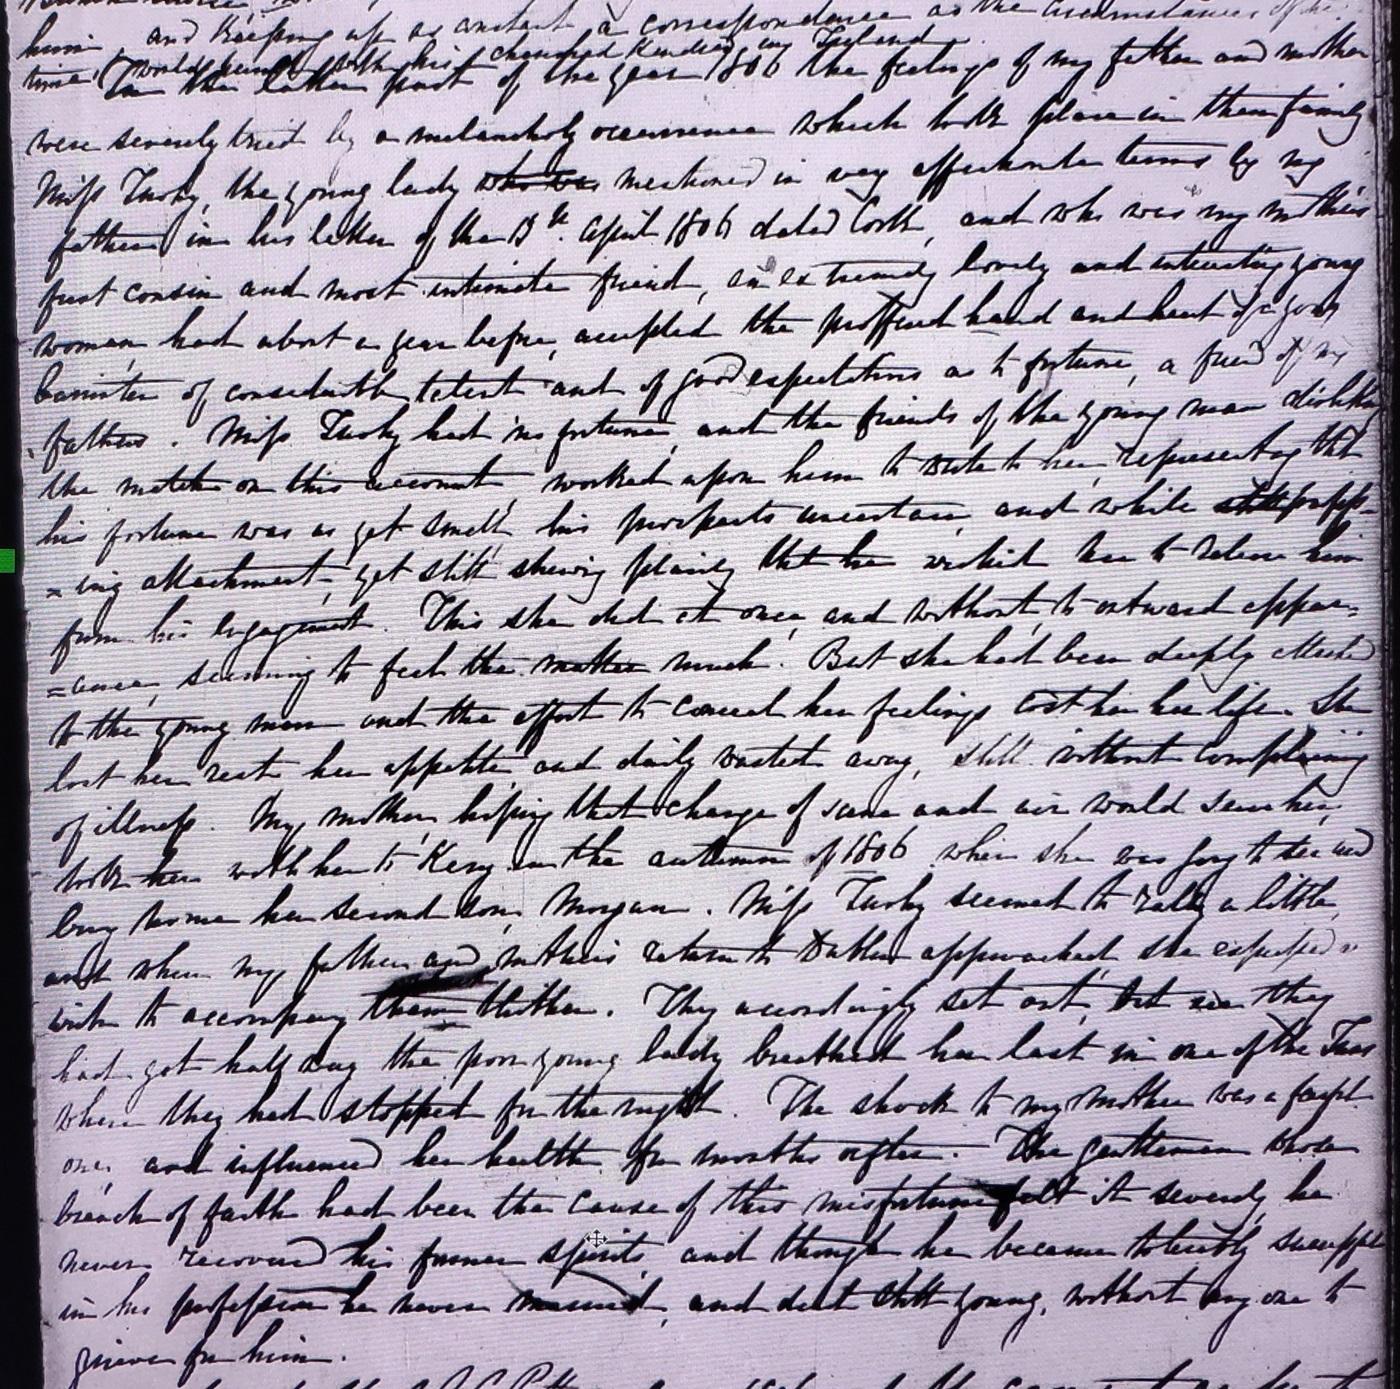 him, and keeping up as constant a correspondence as the circumstances of the
time, would permit with his cherished kindred in Ireland.
In the latter part of the year 1806 the feelings of my father and mother
were severely tried by a melancholy occurrence which took place in their family
Miss Tuohy, the young lady who was mentioned in very affectionate terms by my
father in his letter of the 13th. April 1806 dated Cork, and who was my mother's
first cousin and most intimate friend, an extremely lovely and interesting young
woman, had about a year before, accepted the proffered hand and heart of a young
barrister of considerable talent and of good expectations as to fortune, a friend of my
father's. Miss Tuohy had no fortune, and the friends of the young man disliking
the match on this account, worked upon him to write to her, representing that
his fortune was as yet small, his prospects uncertain, and while still profess-
=ing attachment, yet still shewing plainly that he wished her to release him
from his engagement. This she did at once, and without, to outward appear=
=ance, seeming to feel the matter much. But she had been deeply attached
to the young man and the effort to conceal her feelings cost her her life. She
lost her rest her appetite and daily wasted away, still without complaining
of illness. My mother, hoping that change of scene and air would serve her,
took her with her to Kerry in the autumn of 1806 when she was going to see and
bring home her second son, Morgan. Miss Tuohy seemed to rally a little,
and when my father and mother's return to Dublin approached she expressed a
wish to accompany them thither. They accordingly set out, but ere they
had got half way the poor young lady breathed her last in one of the Inns
where they had stopped for the night. The shock to my mother was a fearful
one, and influenced her health for months after. The gentleman whose
breach of faith had been the cause of this misfortune felt it severely, he
never recovered his former spirits, and though he became tolerably successful
in his profession he never married, and died still young, without any one to
grieve for him.